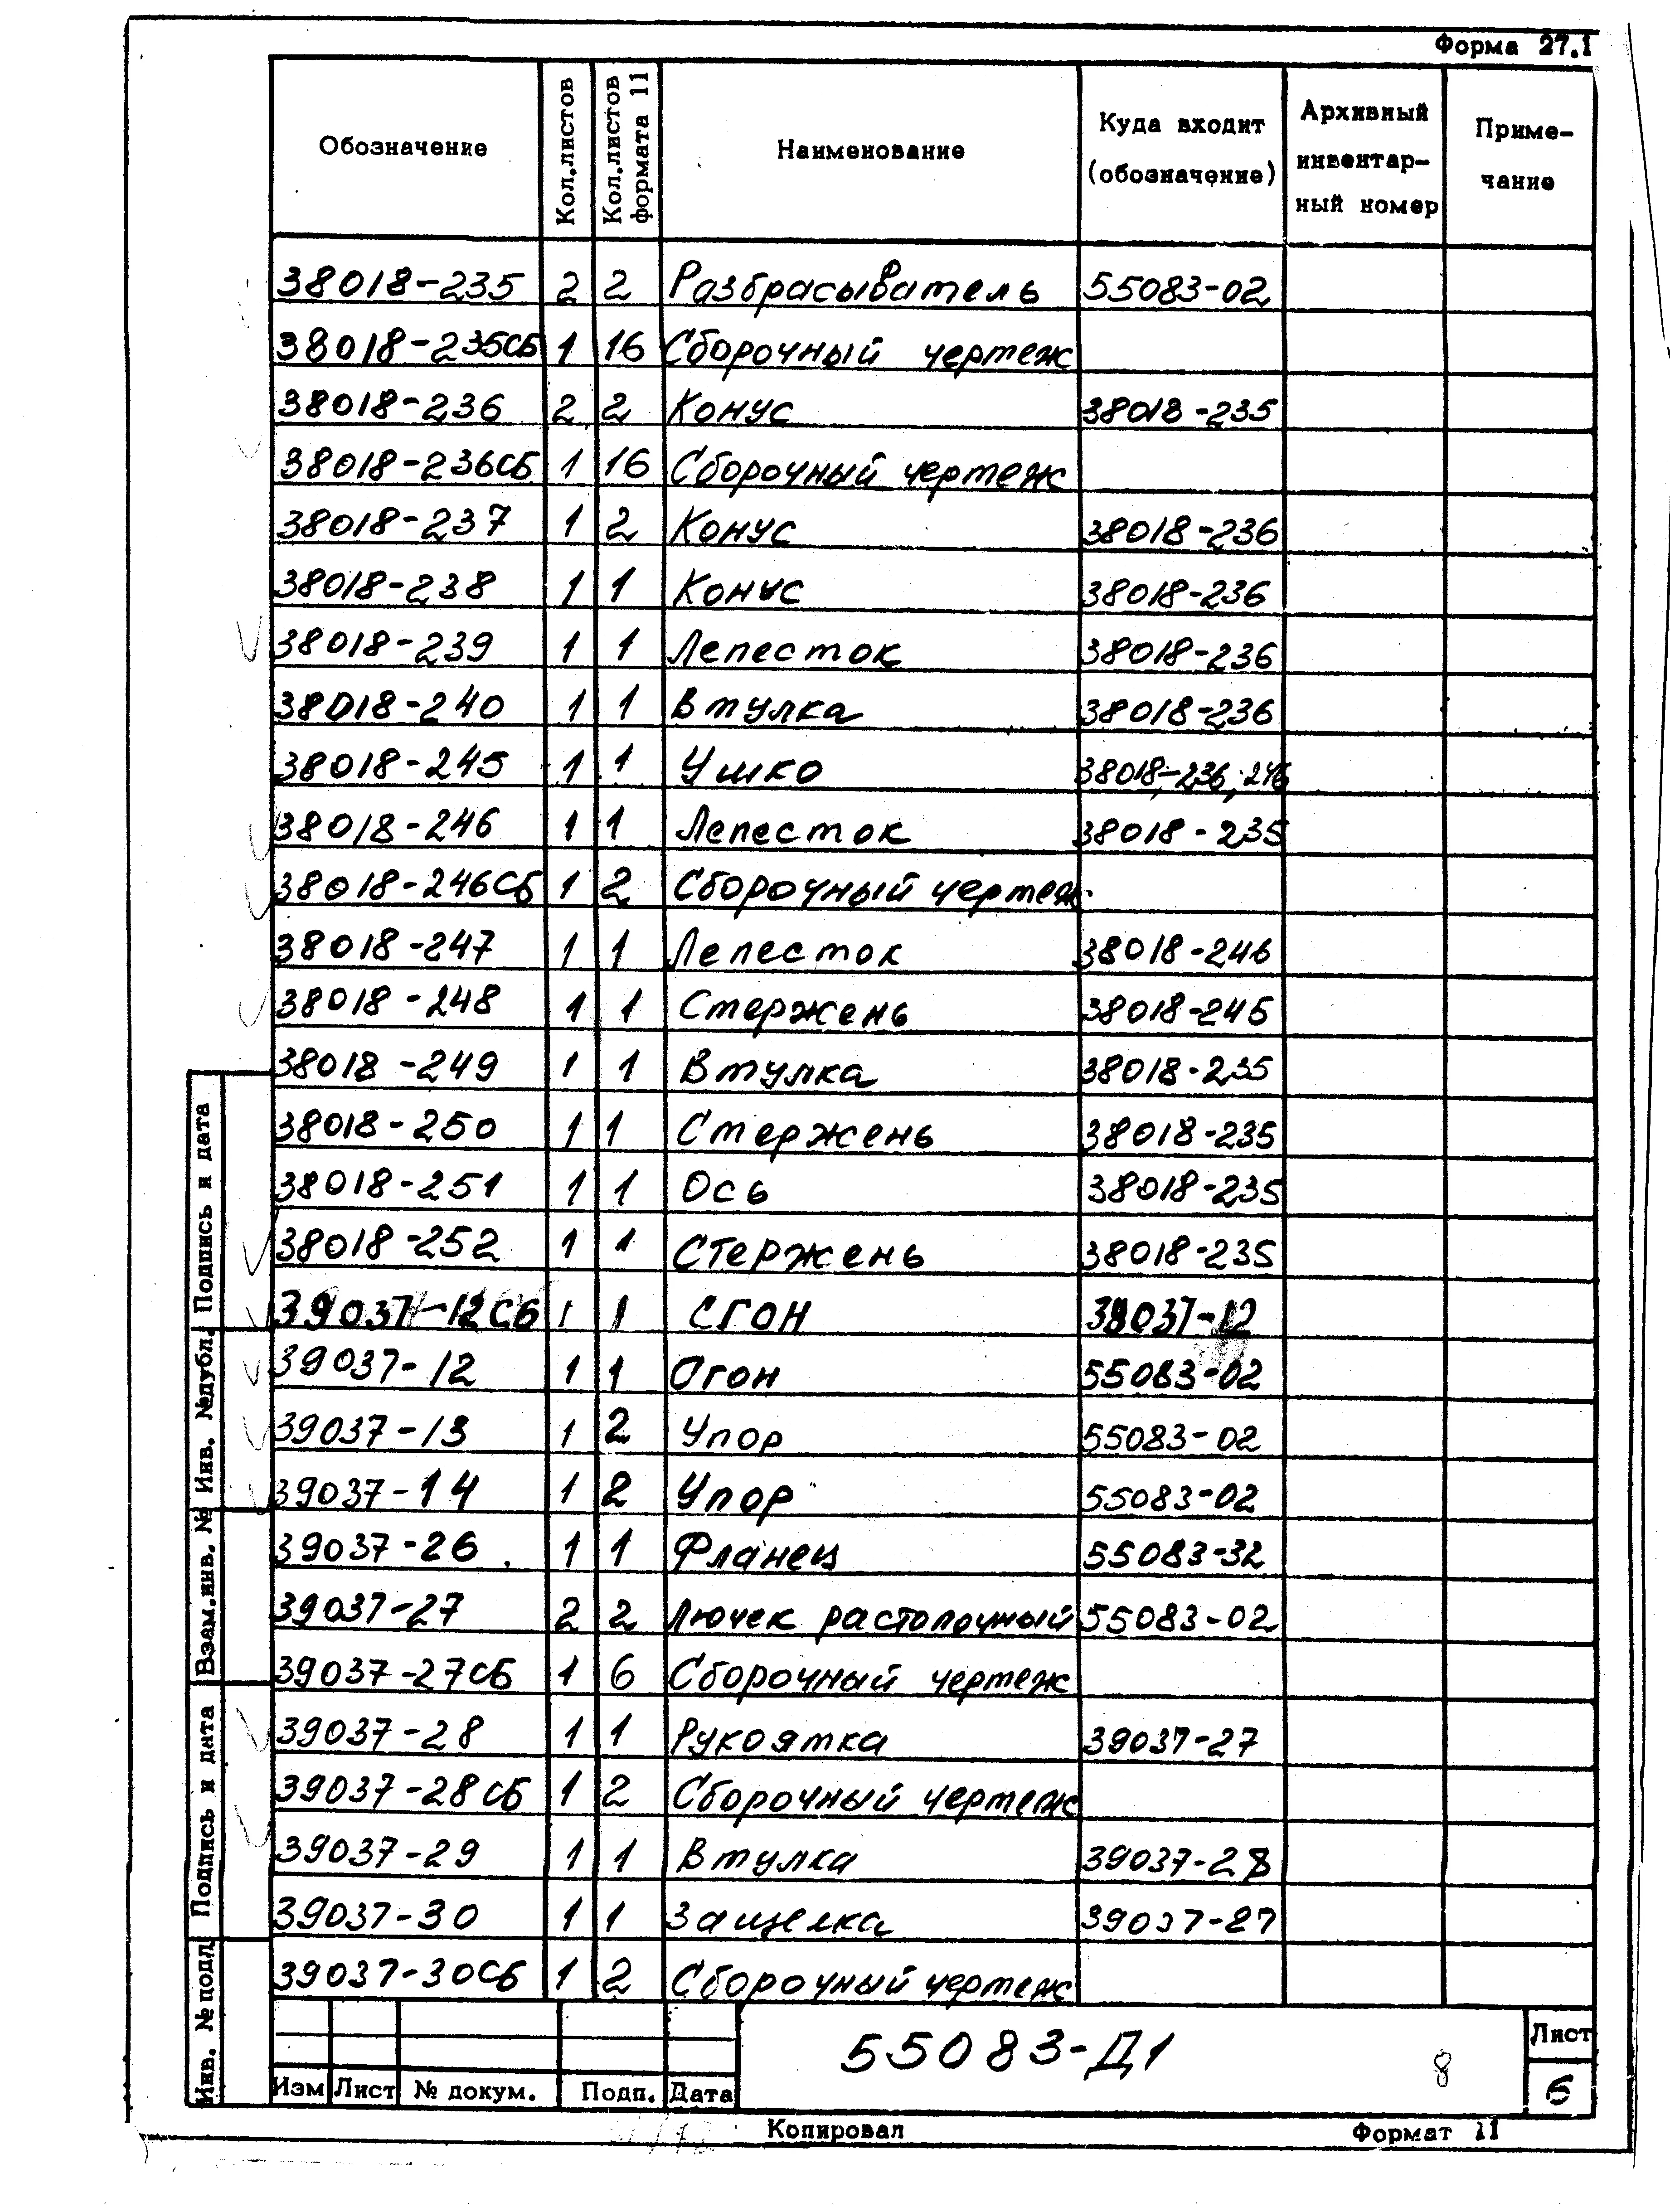 Форма 27.1
Обозначение Кол.листов Кол.листов формата 11 Наименование Куда входит (обозначение) Архивный инвентар- ный номер Приме- чание
38018-235 2 2 Разбрасыватель 55083-02
38018-235СБ 1 16 Сборочный чертеж
38018-236 2 2 Конус 38018-235
38018-236СБ 1 16 Сборочный чертеж
38018-237 1 2 Конус 38018-236
38018-238 1 1 Конус 38018-236
38018-239 1 1 Лепесток 38018-236
38018-240 1 1 Втулка 38018-236
38018-245 1 1 Ушко 38018-236, 246
38018-246 1 1 Лепесток 38018-235
38018-246СБ 1 2 Сборочный чертеж
38018-247 1 1 Лепесток 38018-246
38018-248 1 1 Стержень 38018-246
38018-249 1 1 Втулка 38018-235
38018-250 1 1 Стержень 38018-235
38018-251 1 1 Ось 38018-235
38018-252 1 1 Стержень 38018-235
39037-12СБ 1 1 СГОН 39037-12
39037-12 1 1 Сгон 55083-02
39037-13 1 2 Упор 55083-02
39037-14 1 2 Упор 55083-02
39037-26 1 1 Фланец 55083-32
39037-27 2 2 Лючек растопочный 55083-02
39037-27СБ 1 6 Сборочный чертеж
39037-28 1 1 Рукоятка 39037-27
39037-28СБ 1 2 Сборочный чертеж
39037-29 1 1 Втулка 39037-28
39037-30 1 1 Защелка 39037-27
39037-30СБ 1 2 Сборочный чертеж
Подпись и дата
Инв. №дубл.
Взам.инв. №
Подпись и дата
Инв. №подл
55083-Д1
8
Лист
6
Изм Лист № докум. Подп. Дата
Копировал Формат 11